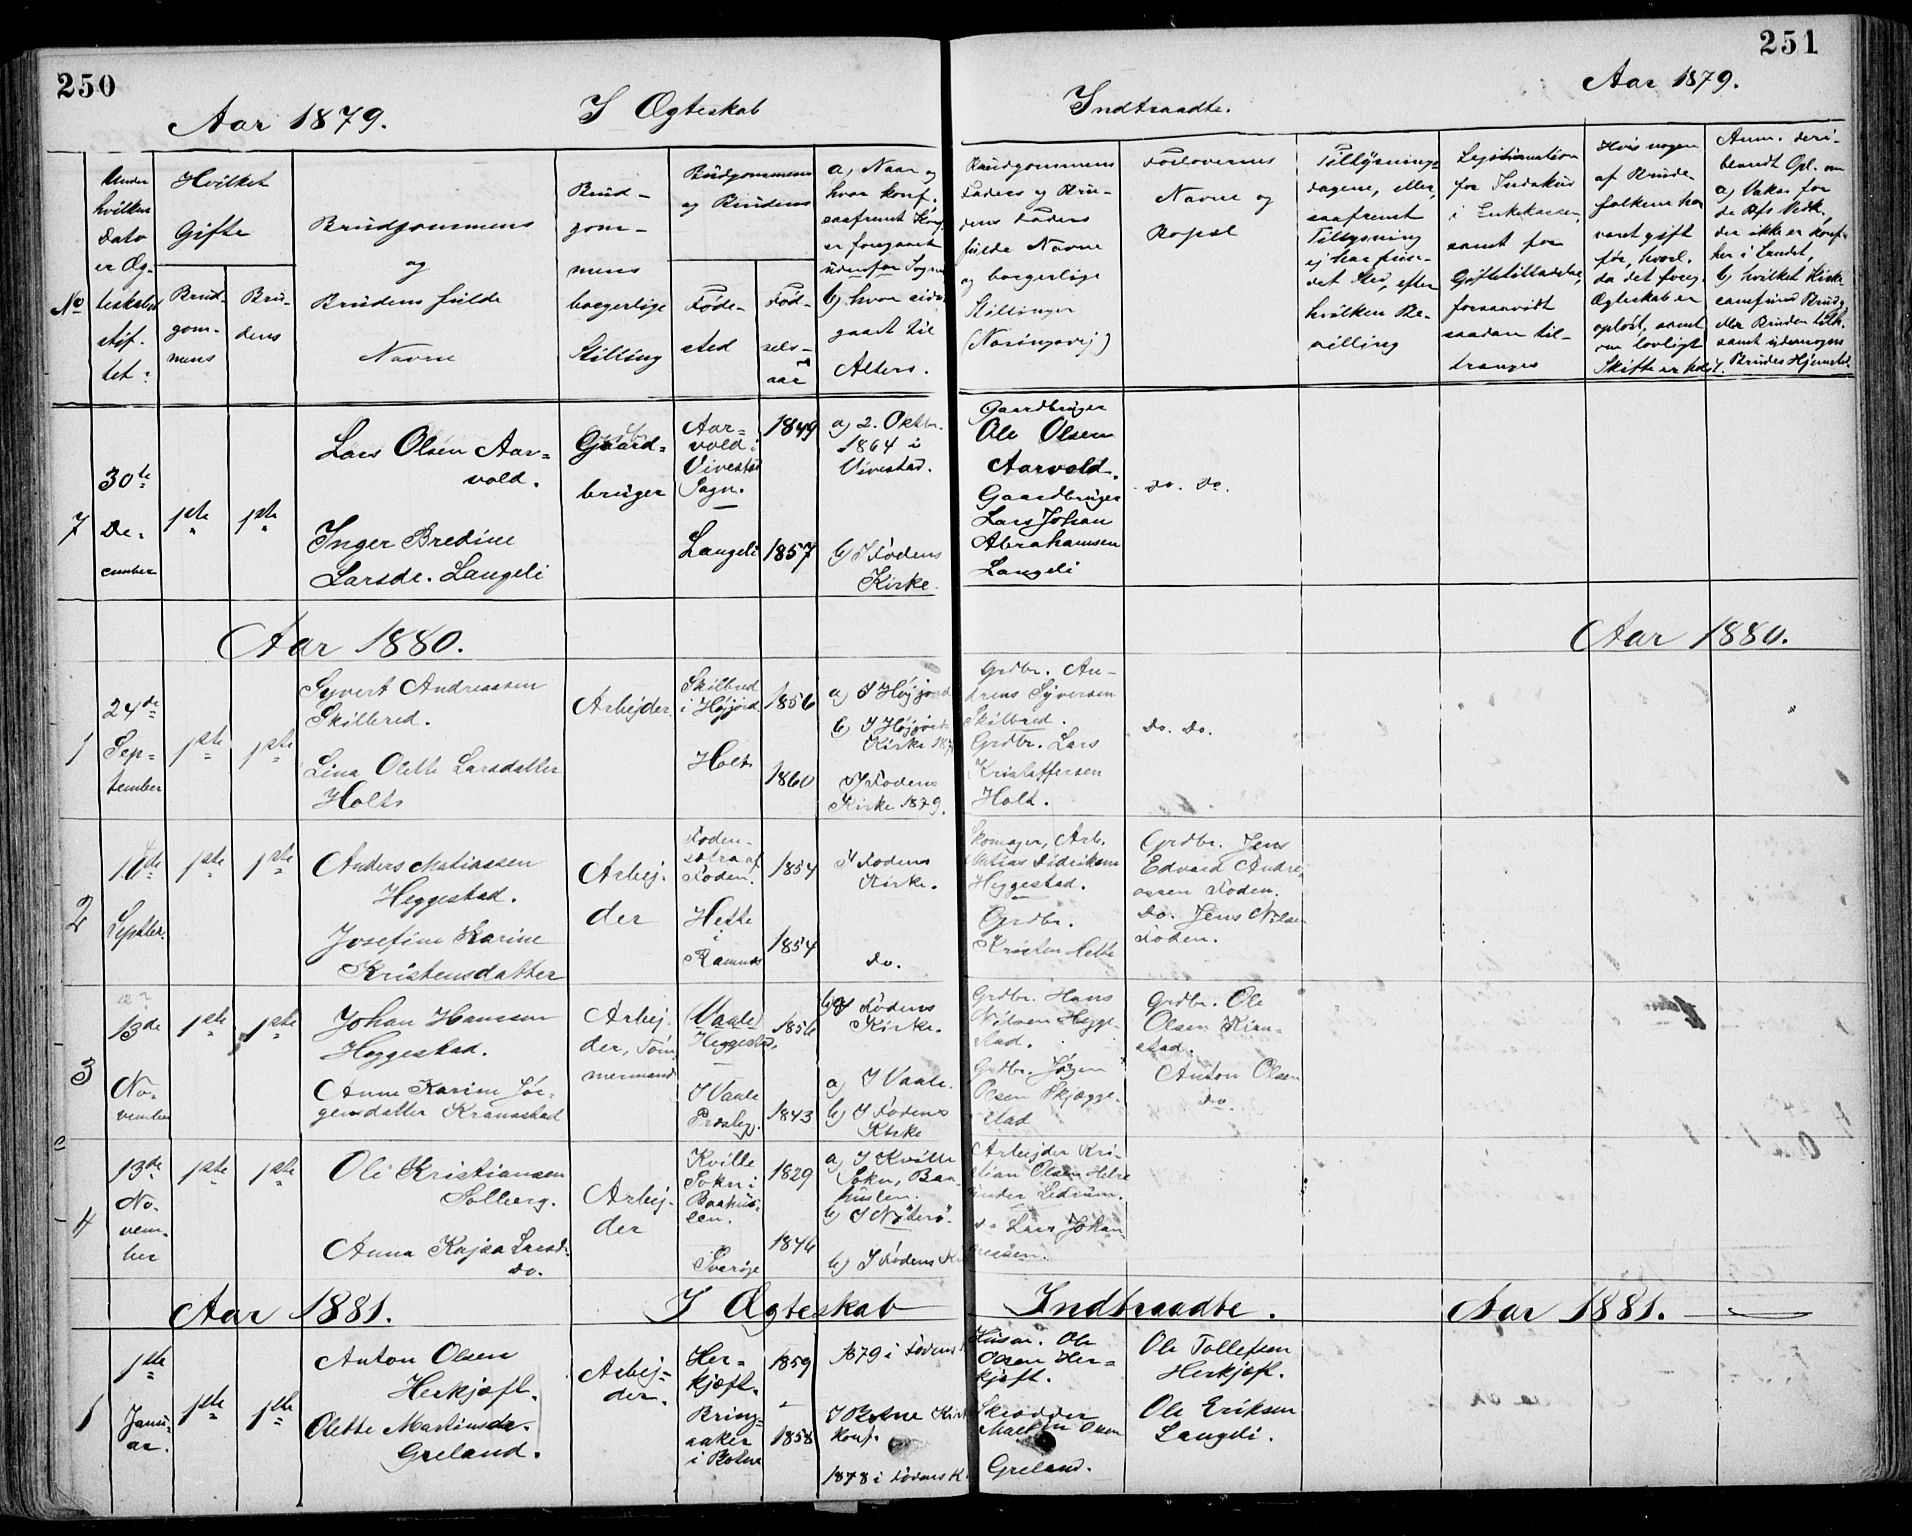 250
Aar 1879.
I Ægteskab
Indtraadte.
Aar 1879.
251
No
Under
hvilken
Dato
er Æg-
teskabet
stif-
tet.
Hvilket
Gifte
Brud-
gom-
mens
Bru-
dens
Brudgommens
og
Brudens fulde
Navne
Brud-
gom-
mens
borgerlige
Stilling
Brudgommens
og Brudens
Føde-
sted
Fød-
sels-
aar
a) Naar og
hvor konf.
saafremt Konf.
er foregaaet
udenfor Sogne
b) hvor sidst
gaaet til
Alters.
Brudgommens
Faders og Bru-
dens Faders
fulde Navne
og borgerlige
Stillinger
(Næringsvej)
Forlovernes
Navne og
Bopæl
Tillysnings-
dagene, eller
saafremt
Tillysning
ej har fun-
det Sted, efter
hvilken Be-
villing
Legitimation
for Indskud
i Enkekassen
samt for
Giftetilladelse,
forsaavidt
saadan til-
trænges
Hvis nogen
af Brude-
folkene har
været gift
før, hvorl.
da det foreg.
Ægteskab er
opløst, samt
om lovligt
Skifte er holdt.
Anm. deri-
blandt Opl. om
a) Vaks. for
de Afs. Vedk.
der ikke er konf.
her i Landet,
b) hvilket Kirke-
samfund Brudg.
eller Bruden tilh.
samt udenbygds
Brudes Hjemsted.
7
30te
De-
cember
1ste
1ste
Lars Olsen Aar-
vold.
Inger Bredine
Larsdr. Langeli
Gaard-
bruger
Aar-
vold i
Vivestad
Sogn.
Langeli
1849
1857
a) 2. Oktbr.
1864 i
Vivestad.
b) I Fodens
Kirke.
Gaardbruger
Ole Olsen
Aarvold.
Gaardbruger
Lars Johan
Abrahamsen
Langeli
do. do.
Aar 1880.
Aar 1880.
1
24de
Sep-
tember
1ste
1ste
Syvert Andreassen
Skilbred.
Lina Olette Larsdatter
Holts
Arbejder.
Skilbred
i Høijord.
Holts
1856
1860
a) I Høijord
b) I Høijords
Kirke
I Fodens
Kirke 1879.
Grdbr. An-
dreas Syversen
Skilbred.
Grdbr. Lars
Kristoffersen
Holt.
do. do.
2
10de
Septber.
1ste
1ste
Anders Matiassen
Heggestad.
Josefine Karine
Kristensdatter
Arbej-
der
Foden-
søtra af
Foden.
Hette
i
Ramnes
1854
1854
I Fodens
Kirke.
do.
Skomager, Arb.
Matias Didriksen
Heggestad.
Grdbr.
Kristen Hette
Grdbr. Jens
Edvard Andre-
assen Foden.
do. Jens Nilsen
Foden.
3
13de
No-
vember
1ste
1ste
Johan Hanssen
Heggestad.
Anne Karine Jør-
gensdatter Kranastad
Arbej-
der, Tøm-
mermand
(Vaale)
Heggestad,
I Vaale
Præsteg.
1856
1843
b) I Fodens
Kirke.
a) I Vaale.
b) I Fodens
Kirke
Grdbr. Hans
Nilsen Hegge-
stad.
Grdbr. Jørgen
Olsen Skjægge-
stad
Grdbr. Ole
Olsen Kira-
stad.
Anton Olsen
do.
4
13de
No-
vem-
ber
1ste
1ste
Ole Kristiansen
Solberg.
Anna Kajsa Larsd.
do.
Arbej-
der
Kville
Sokn i
Baahus-
len.
Sverige
1829
1846
a) I Kville
Sokn, Baa-
huslen.
b) I Nøterø.
b) I Fodens K
Arbejder Kri-
stian Olsen Helre
under Ledrum.
do Lars Johan
Aar 1881.
I Ægteskab
Indtraadte.
Aar 1881.
1
1ste
Janu-
ar.
1ste
1ste
Anton Olsen
Herkjæft.
Olette Martinsdr.
Greland.
Arbej-
der.
Her-
kjæft.
Bring-
aaker
i Botne
1859
1858
1879 i Fodens
I Botne Kirke
konf.
1878 i Fodens K.
Husm. Ole
Olsen Her-
kjæft.
Skrædder
Martin Olsen
Greland.
Ole Tollefsen
Herkjæft.
Ole Eriksen
Langeli.